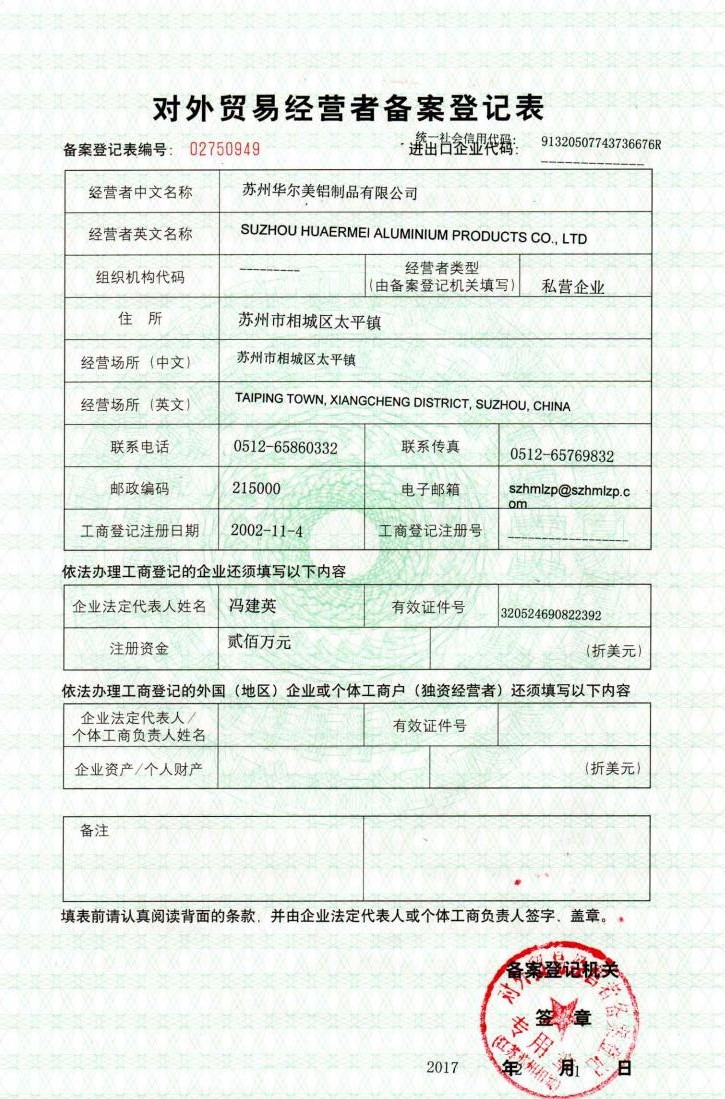 对外贸易经营者备案登记表
统一社会信用代码:
备案登记表编号: 02750949 进出口企业代码: 91320507743736676R
-------------
经营者中文名称 苏州华尔美铝制品有限公司
经营者英文名称 SUZHOU HUAERMEI ALUMINIUM PRODUCTS CO., LTD
组织机构代码 --------- 经营者类型
(由备案登记机关填写) 私营企业
住 所 苏州市相城区太平镇
经营场所（中文） 苏州市相城区太平镇
经营场所（英文） TAIPING TOWN, XIANGCHENG DISTRICT, SUZHOU, CHINA
联系电话 0512-65860332 联系传真 0512-65769832
邮政编码 215000 电子邮箱 szhmlzp@szhmlzp.c
om
工商登记注册日期 2002-11-4 工商登记注册号 -----------------
依法办理工商登记的企业还须填写以下内容
企业法定代表人姓名 冯建英 有效证件号 320524690822392
注册资金 贰佰万元 (折美元)
依法办理工商登记的外国（地区）企业或个体工商户（独资经营者）还须填写以下内容
企业法定代表人/
个体工商负责人姓名 有效证件号
企业资产/个人财产 (折美元)
备注
填表前请认真阅读背面的条款，并由企业法定代表人或个体工商负责人签字、盖章。
备案登记机关
签 章
对外贸易经营者备案登记
专用章
2017 年 月 日